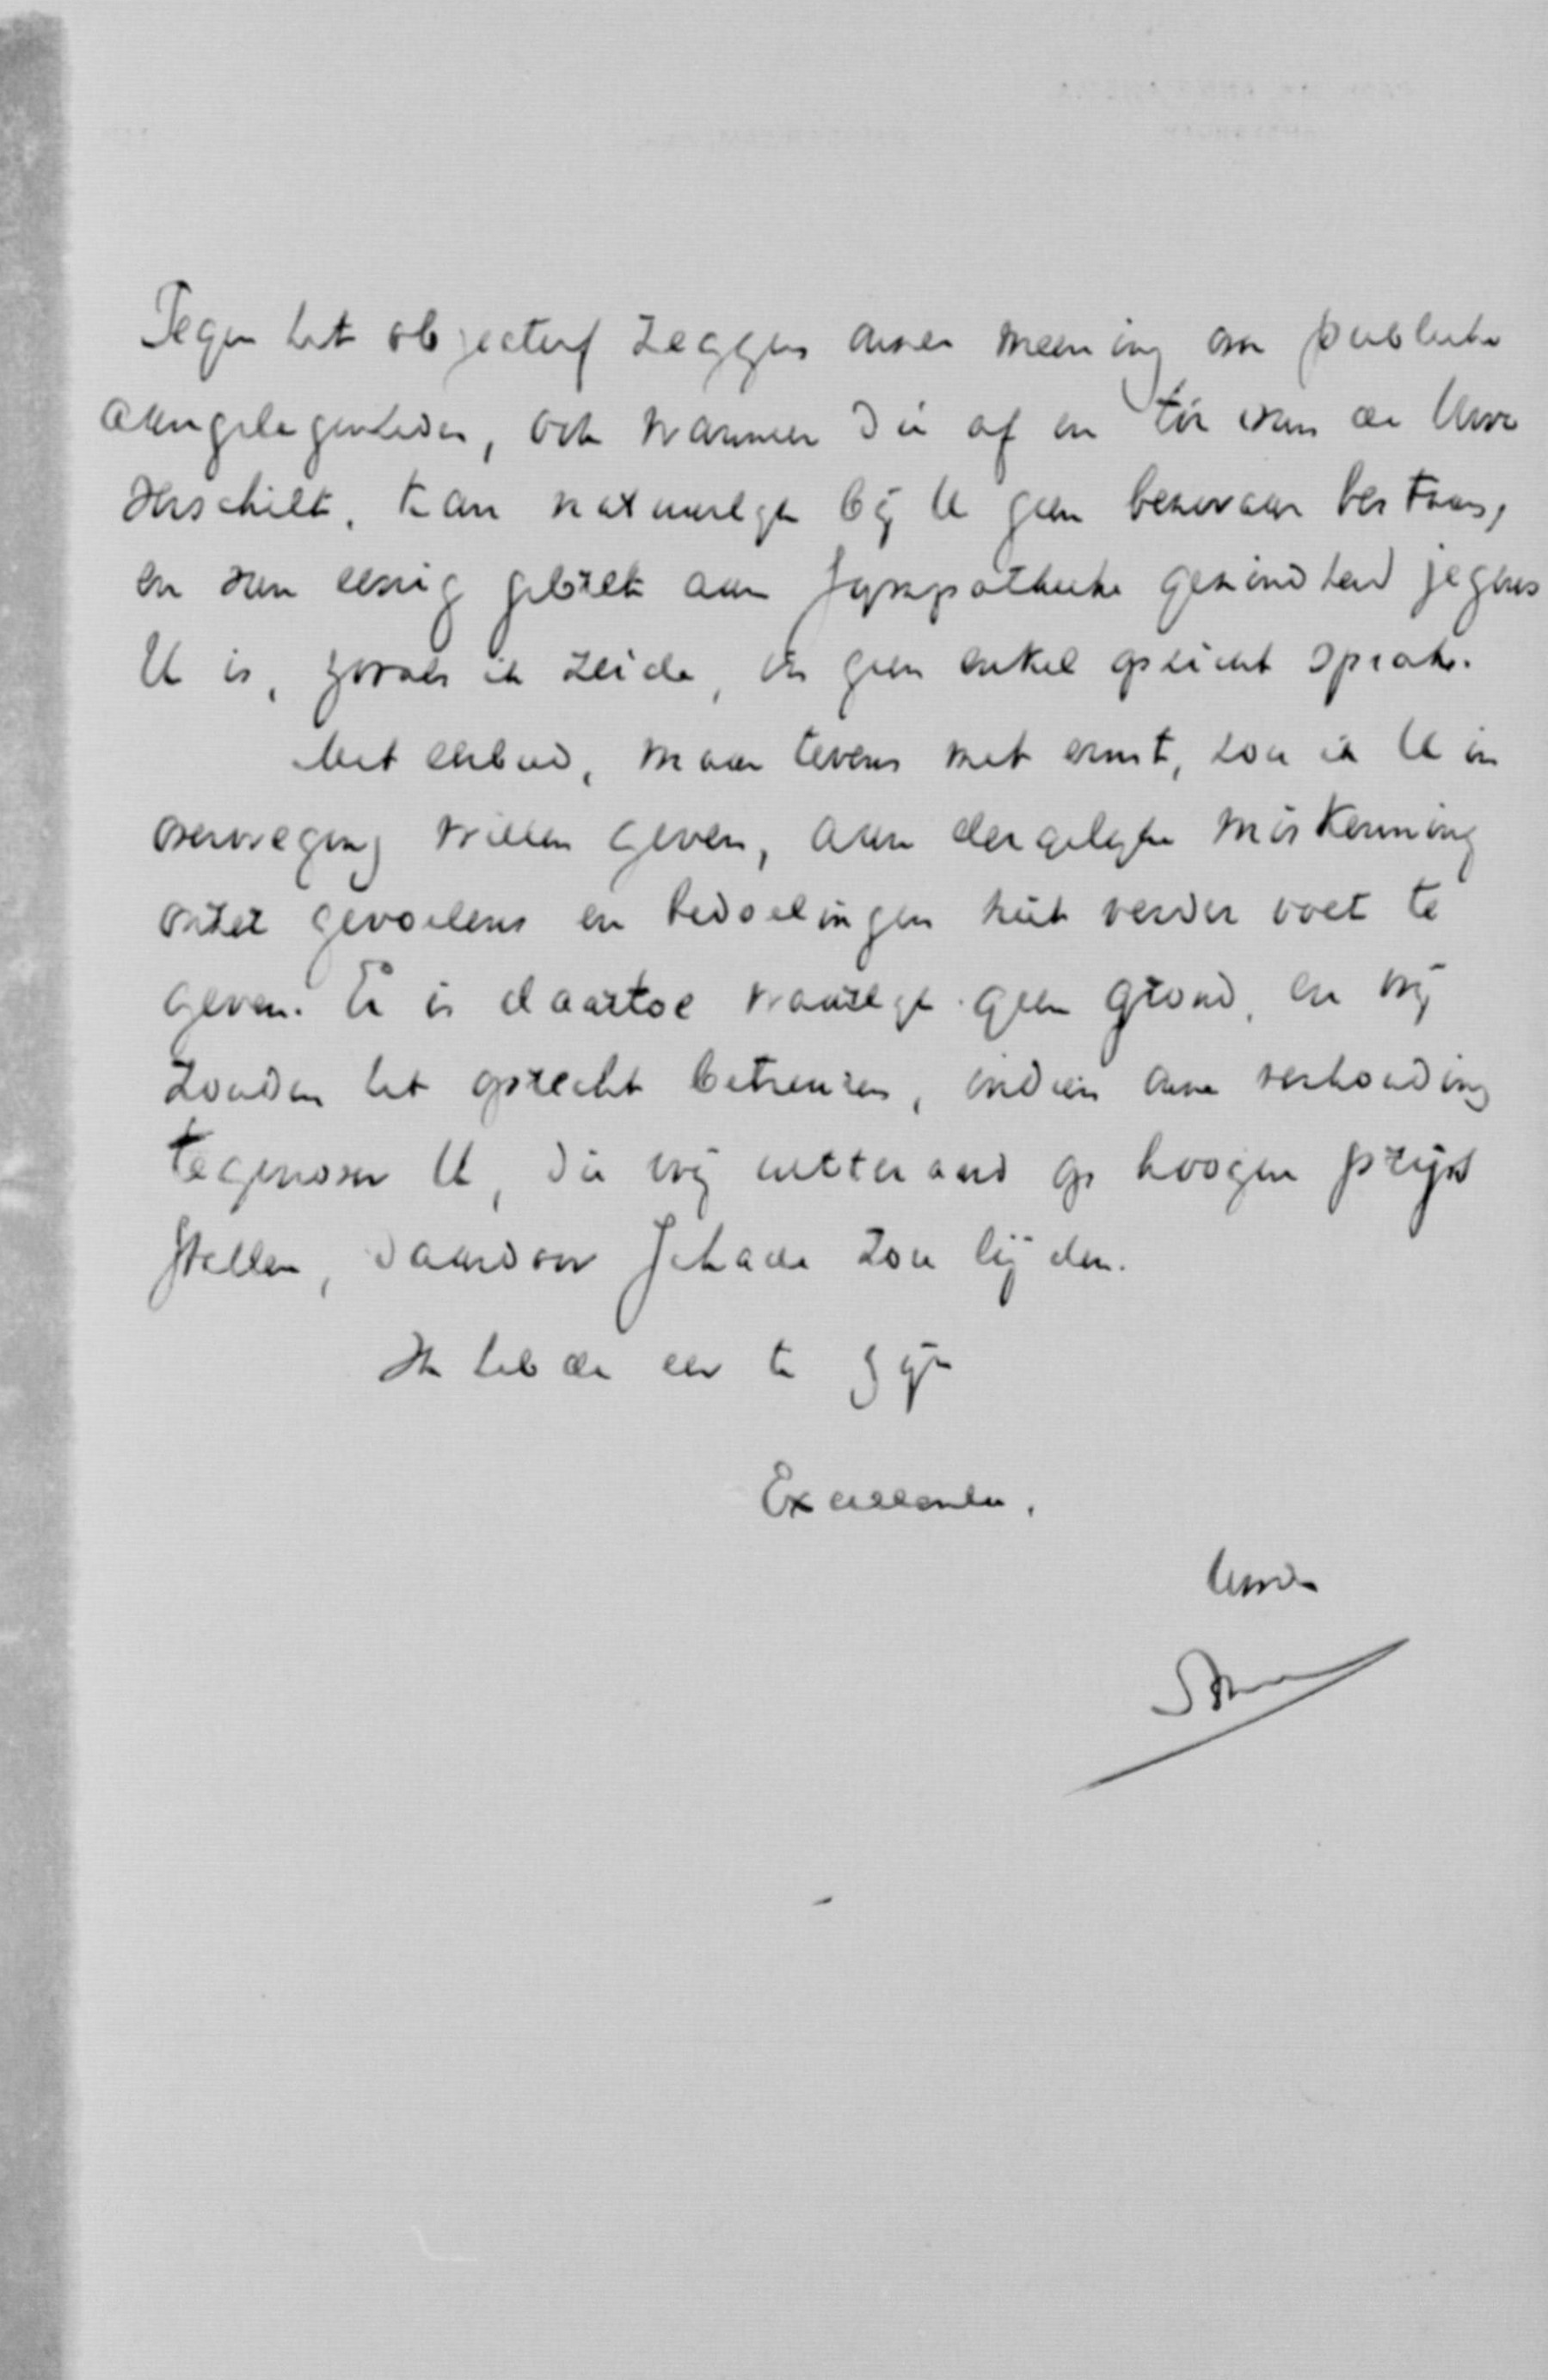 Tegen het objectief zeggen onzer meening over publieke
aangelegenheden, ook wanneer die af en toe van de Uwe
verschilt, kan natuurlijk bij U geen bezwaar bestaan,
en van eenig gebrek aan sympathieke gezindheid jegens
U is, zooals ik zeide, in geen enkel opzicht sprake.
Met eerbied, maar tevens met ernst, zou ik U in
overweging willen geven, aan dergelijke miskenning
onzer gevoelens en bedoelingen niet verder voet te
geven. Er is daartoe waarlijk geen grond, en wij
zouden het oprecht betreuren, indien onze verhouding
tegenover U, die wij uiteraard op hoogen prijs
stellen, daardoor schade zou lijden.
Ik heb de eer te zijn
Excellentie,
Uwe